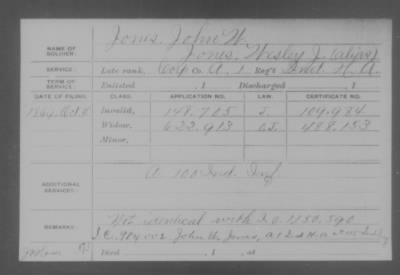 Jones, John W.
NAME OF SOLDIER: Jones, Wesley J. (alias)
SERVICE: Late rank, Co. A, 1 Reg't Ind. H. A.
TERM OF SERVICE: Enlisted , 1 Discharged , 1
DATE OF FILING. CLASS. APPLICATION NO. LAW. CERTIFICATE NO.
Invalid, 148.705 104.984
Widow, 633.913 438.153
Minor,
ADDITIONAL SERVICES: A 100 Ind. Inf
REMARKS: Not identical with I.O. 1150.590
I.C. 984002 John W. Jones, A 1 2d H.A.
Died , 1 , at